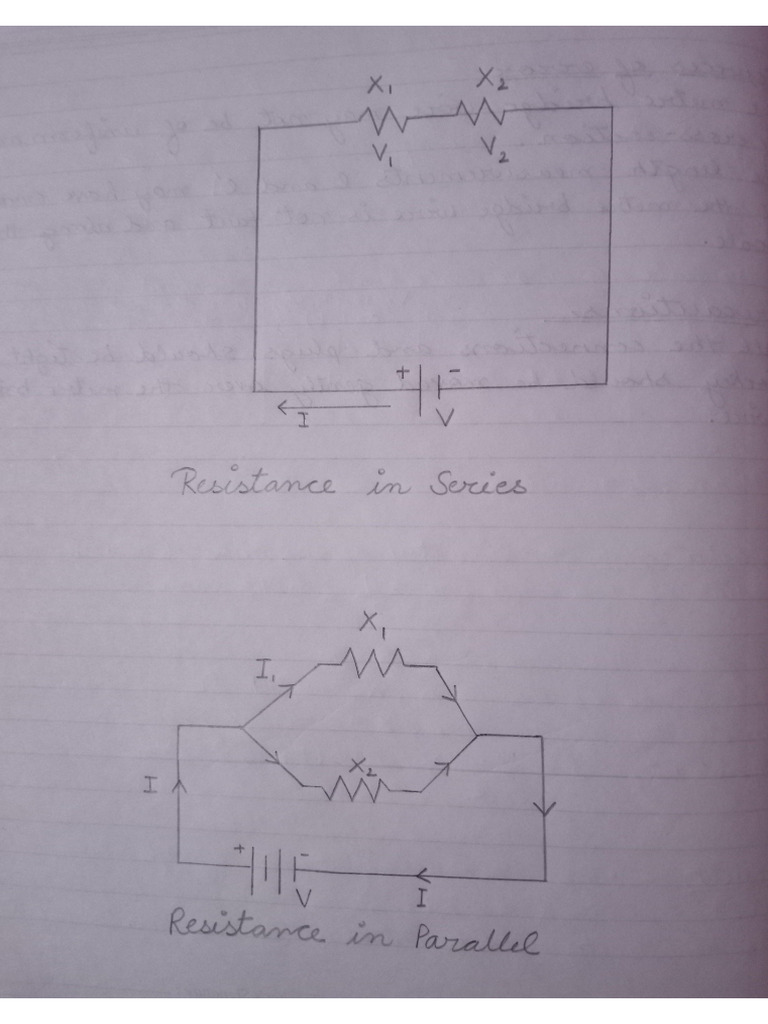 X₁ X₂
V₁ V₂
+ -
I V
Resistance in Series
X₁
I₁
X₂
I
+ -
V I
Resistance in Parallel